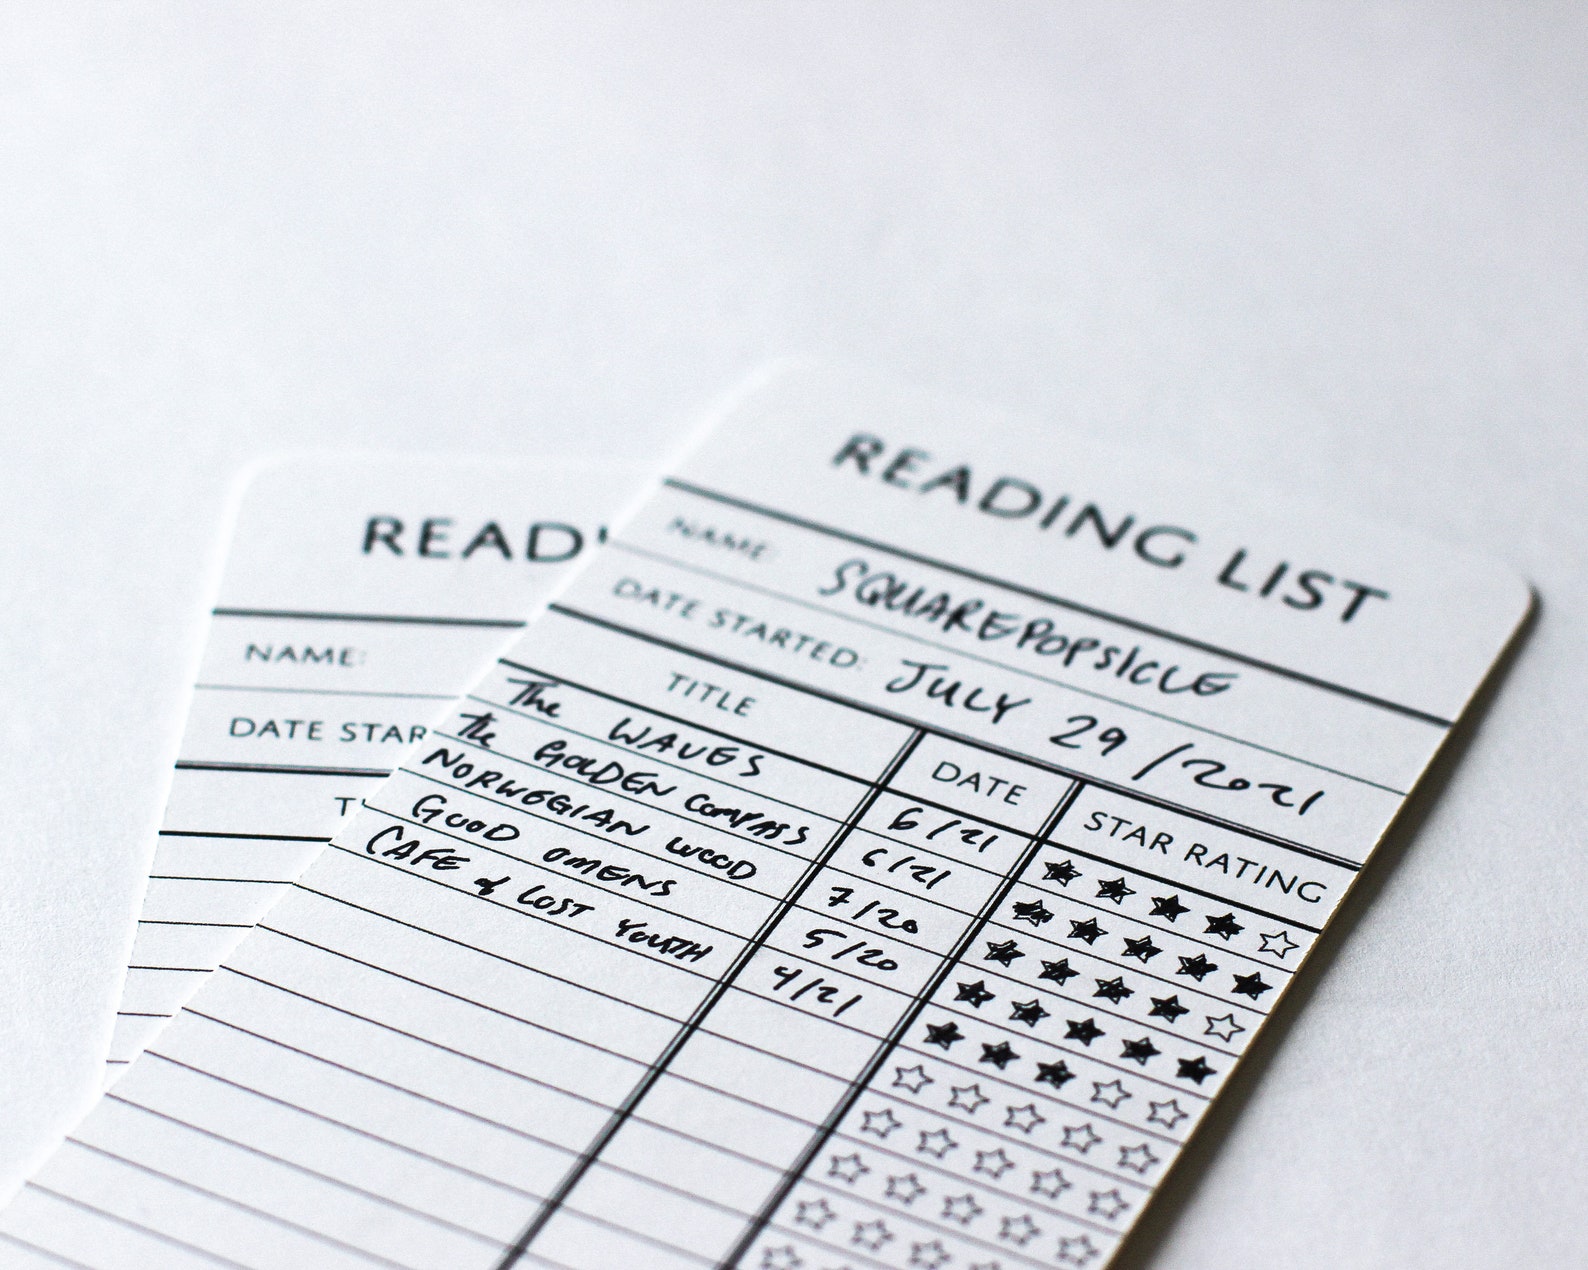 READING LIST
NAME: SQUAREPOPSICLE
DATE STARTED: JULY 29/2021
TITLE DATE STAR RATING
The WAVES 6/21
The GOLDEN COMPASS 6/21
NORWEGIAN WOOD 7/20
GOOD OMENS 5/20
CAFE of LOST YOUTH 4/21
READ
NAME:
DATE STAR
T